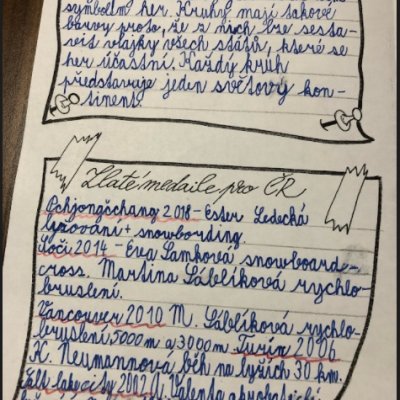 symbolem her. Kruhy mají takové
barvy proto, že z nich lze sesta-
vit vlajky všech států, které se
her účastní. Každý kruh
představuje jeden světový kon-
tinent.
Zlaté medaile pro ČR
Pchjongčchang 2018 - Ester Ledecká
lyžování + snowbording.
Soči 2014 - Eva Samková snowboarde-
cross. Martina Sáblíková rychlo-
bruslení.
Vancouver 2010 M. Sáblíková rychlo-
bruslení 5000 m a 3000 m. Turín 2006
K. Neumannová běh na lyžích 30 km.
Salt lake city 2002 A. Valenta akrobatické